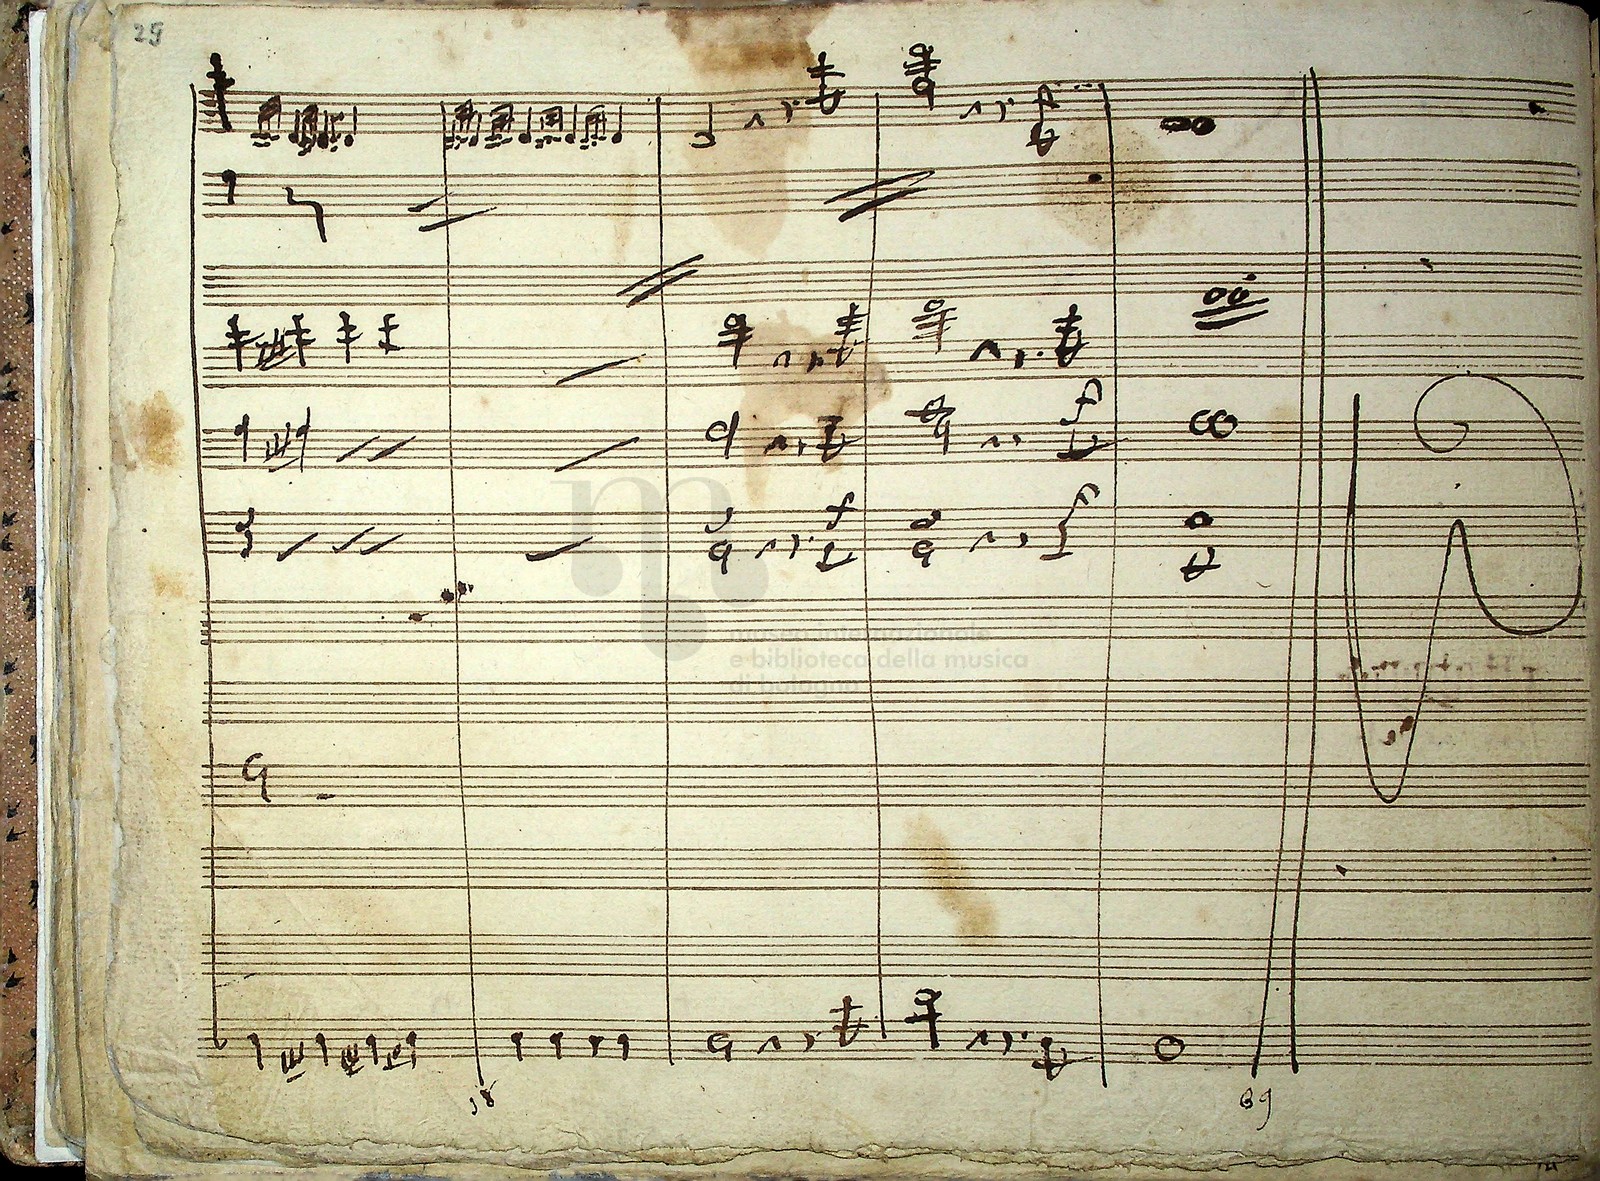 25
museo internazionale
e biblioteca della musica
di bologna
18
89